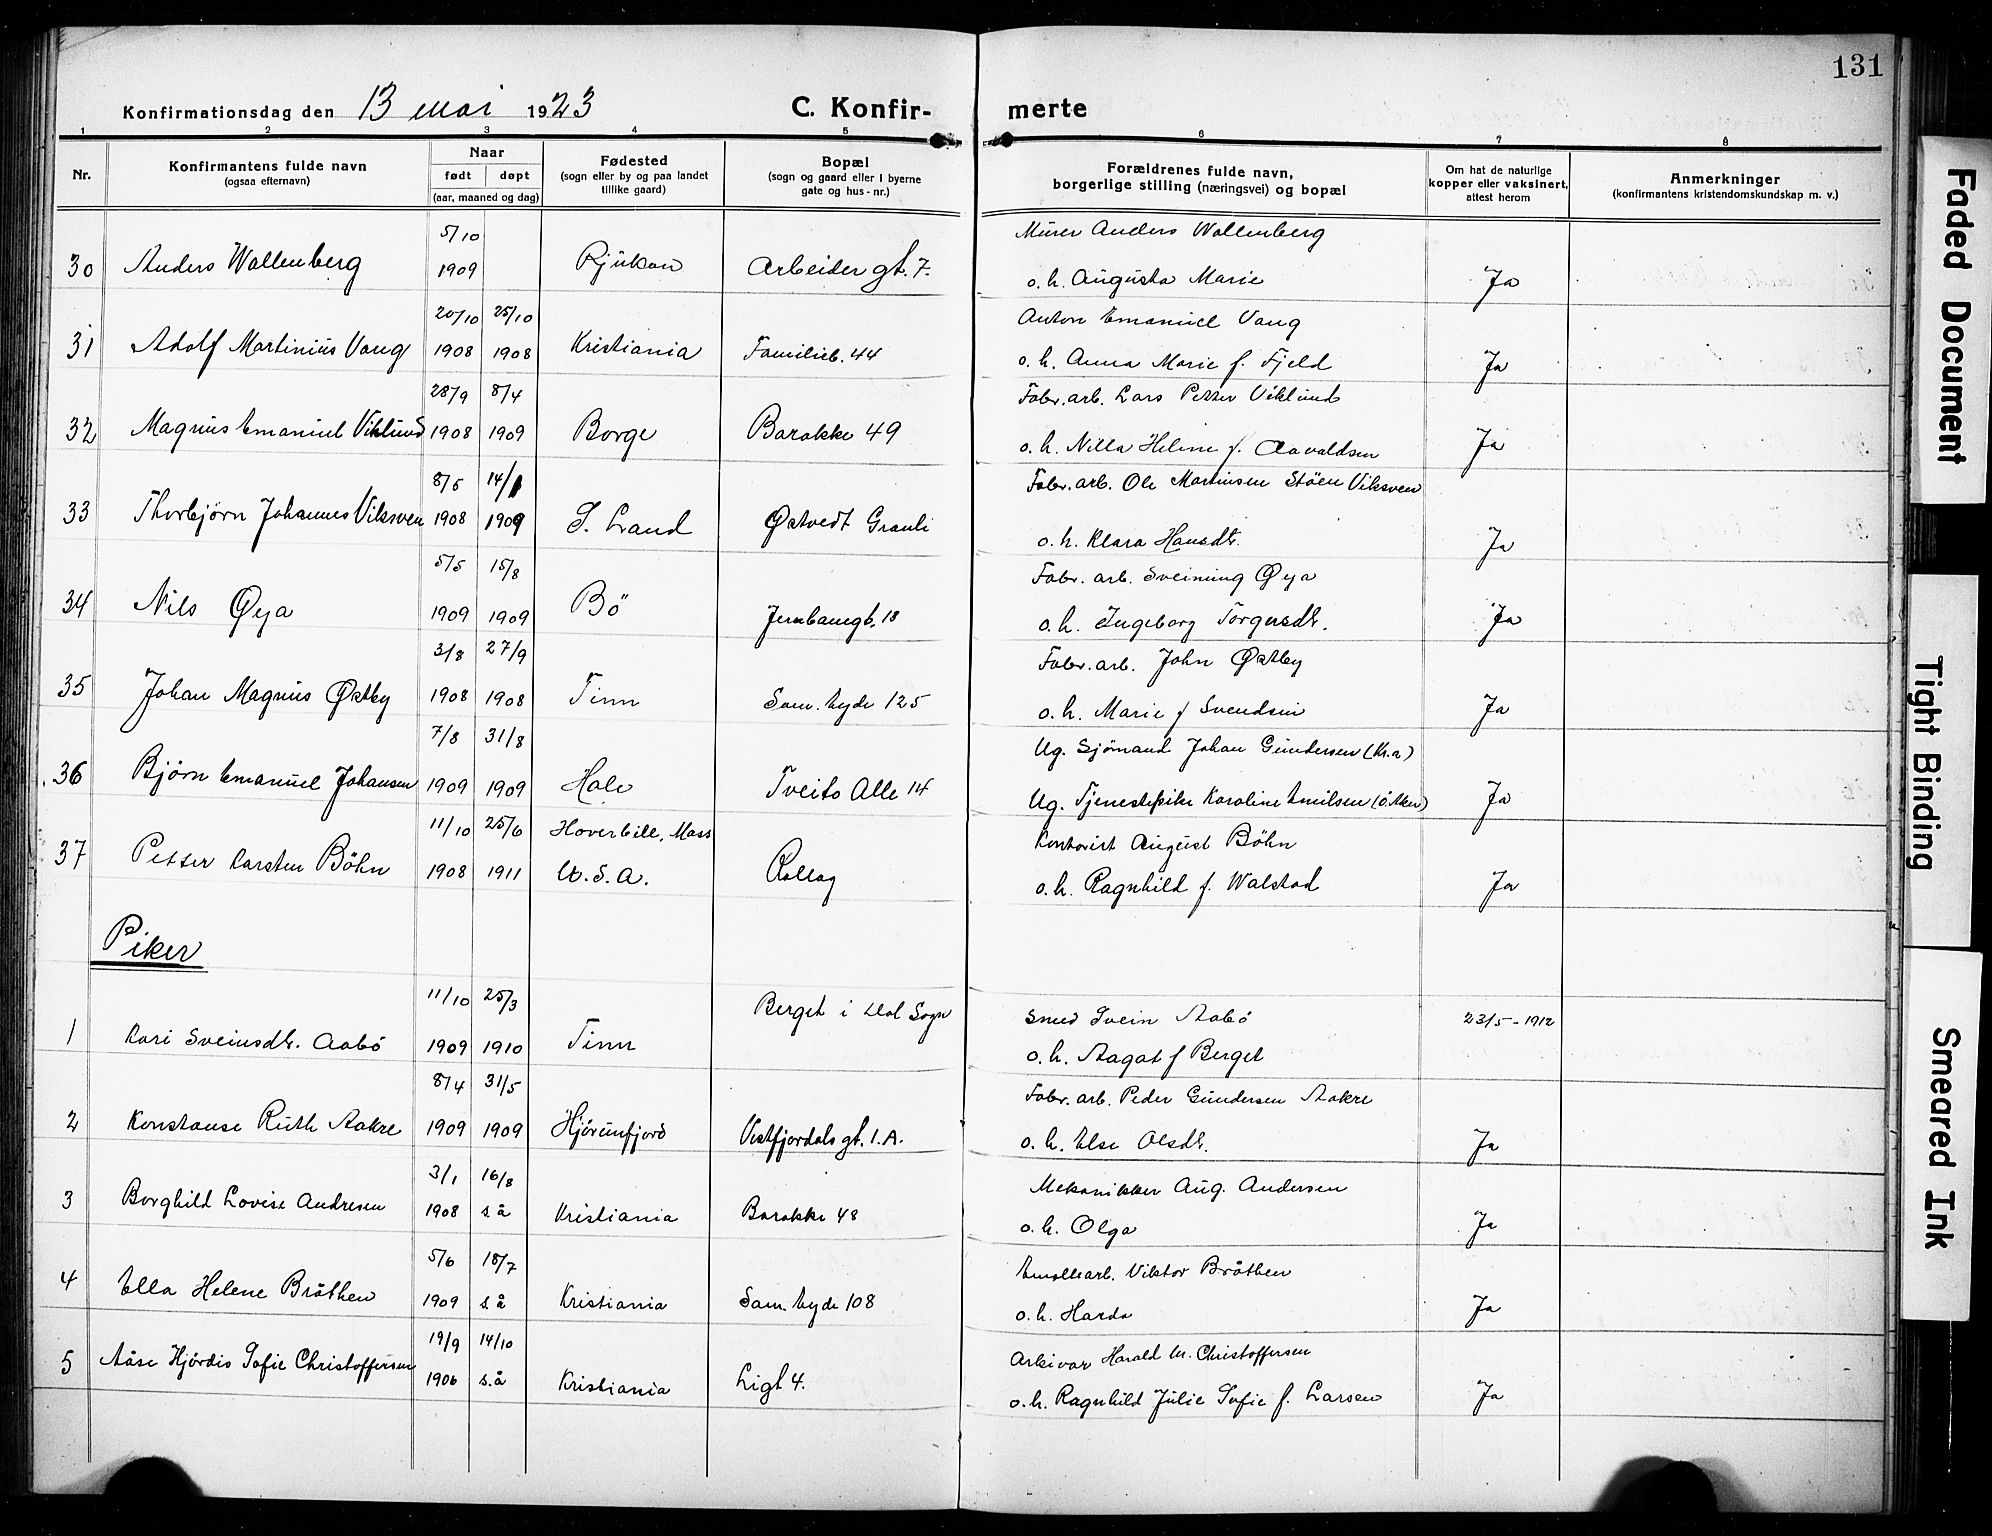 131
Konfirmationsdag den 13 mai 1923
C. Konfir-merte
1 2 3 4 5 6 7 8
Nr.
Konfirmantens fulde navn
(ogsaa efternavn)
Naar
født døpt
(aar, maaned og dag)
Fødested
(sogn eller by og paa landet
tillike gaard)
Bopæl
(sogn og gaard eller i byerne
gate og hus - nr.)
Forældrenes fulde navn,
borgerlige stilling (næringsvei) og bopæl
Om hat de naturlige
kopper eller vaksinert,
attest herom
Anmerkninger
(konfirmantens kristendomskundskap m. v.)
5/10 Murer Anders Wallenberg
30 Anders Wallenberg 1909 Rjukan Arbeider gt. 7. o. h. Augusta Marie Ja
20/10 25/10 Anton Emanuel Vang
31 Adolf Martinius Vang 1908 1908 Kristiania Familieb. 44 o. h. Anna Marie f. Fjeld Ja
28/9 8/4 Fabr. arb. Lars Petter Viklund
32 Magnus Emanuel Viklund 1908 1909 Borge Barakke 49 o. h. Nilla Helene f. Aavaldsen Ja
8/5 14/1 Fabr. arb. Ole Martinsen Stöen Viksveen
33 Thorbjørn Johannes Viksveen 1908 1909 S. Land Østvedt Granli o. h. Klara Hansdtr. Ja
5/5 15/8 Fabr. arb. Sveinung Øya
34 Nils Øya 1909 1909 Bö Jernbanegt. 18 o. h. Ingeborg Torgersdtr. Ja
3/8 27/9 Fabr. arb. John Østby
35 Johan Magnus Østby 1908 1908 Tinn Sam. byde 125 o. h. Marie f Svendsen Ja
7/8 31/8 Ug. Sjömand Johan Gundersen (Kr.a)
36 Bjørn Emanuel Johansen 1909 1909 Hole Tveito Alle 14 Ug. Tjenestepike Karoline Emilsen (Ö Aker) Ja
11/10 25/6 Hoverhill, Mass Kontorist August Böhn
37 Petter Karsten Böhn 1908 1911 U. S. A. Rollag o. h. Ragnhild f. Walstad Ja
Piker
11/10 25/3 Berget i Dal Sogn Smed Svein Aabö 23/5 - 1912
1 Kari Sveinsdtr. Aabö 1909 1910 Tinn o. h. Aagot f Berget
8/4 31/5 Fabr. arb. Peder Gundersen Aakre
2 Konstanse Ruth Aakre 1909 1909 Hjörunfjord Vestfjordals gt. 1. A. o. h. Else Olsdtr. Ja
3/1 16/8 Mekanikker Aug. Andersen
3 Borghild Lovise Andresen 1908 s. å Kristiania Barakke 48 o. h. Olga Ja
5/6 18/7 Emallearb. Viktor Bråthen
4 Ella Helene Bråthen 1909 s. å Kristiania Sam. byde 108 o. h. Harda Ja
19/9 14/10 Arkivar Harald M. Christoffersen
5 Aåse Hjördis Sofie Christoffersen 1906 s. å Kristiania Ligt 4. o. h. Ragnhild Julie Sofie f. Larsen Ja
Faded Document
Tight Binding
Smeared Ink